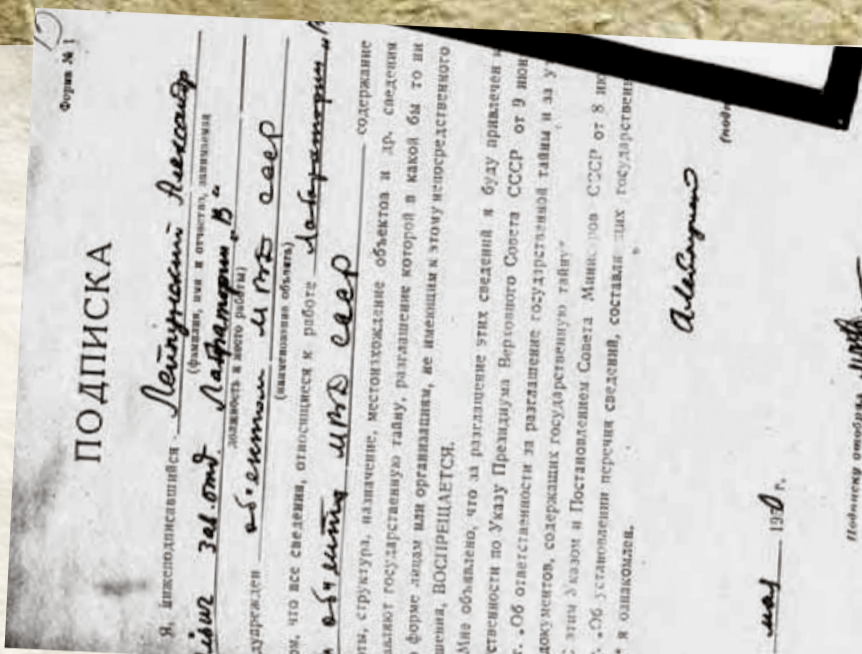 Форма № 1
ПОДПИСКА
Я, нижеподписавшийся Лейпунский Александр
(фамилия, имя и отчество, занимаемая
зав. отд. Лаборатории „В“
должность и место работы)
объектом МВД СССР
(наименование объекта)
что все сведения, относящиеся к работе Лаборатории „В“
объекта МВД СССР содержание
структура, назначение, местонахождение объектов и др. сведения
государственную тайну, разглашение которой в какой бы то ни
форме лицам или организациям, не имеющим к этому непосредственного
ВОСПРЕЩАЕТСЯ.
Мне объявлено, что за разглашение этих сведений я буду привлечен
по Указу Президиума Верховного Совета СССР от 9
„Об ответственности за разглашение государственной тайны и за
документов, содержащих государственную тайну“
этим Указом и Постановлением Совета Министров СССР от 8
„Об установлении перечня сведений, составляющих
и ознакомлен.
мая 1950 г.
Подписку отобрал